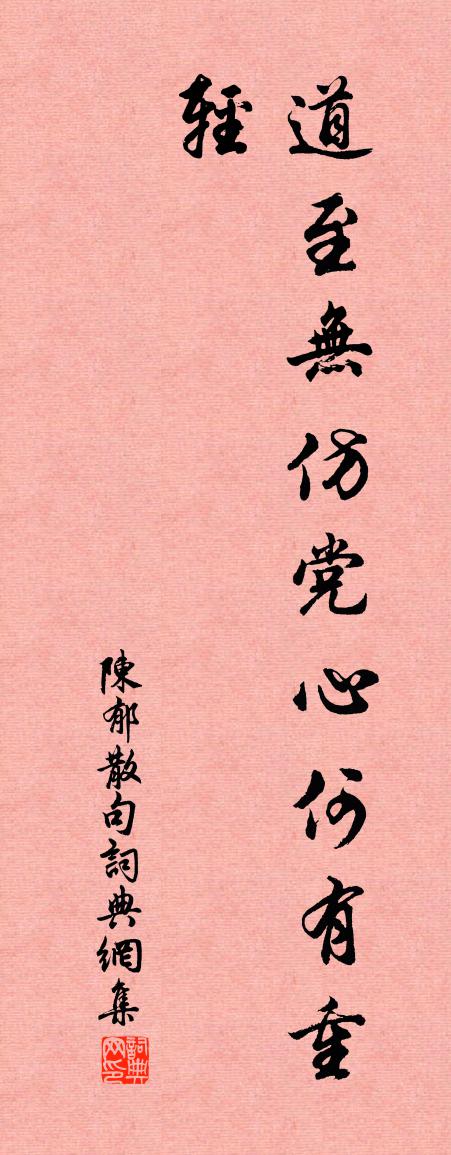 道至無仿党心何有重
輕
陳郁散句詞典網集
詞典网印